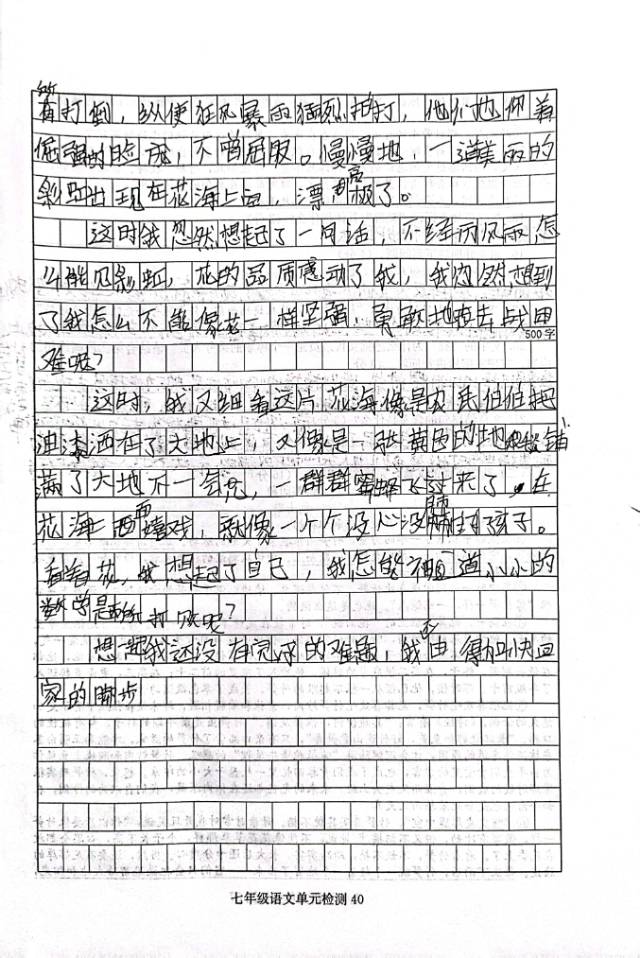 有打倒，纵使狂风暴雨猛烈拍打，他们也仰着
倔强的脸庞，不曾屈服。慢慢地，一道美丽的
彩虹出现在花海上面，漂亮极了。
这时我忽然想起了一句话，不经历风雨怎
么能见彩虹，花的品质感动了我，我忽然想到
了我怎么不能像花一样坚强，勇敢地去战胜困
500字
难呢？
这时，我又细看这片花海像是农民伯伯把
油漆洒在了大地上，又像是一张黄色的地毯铺
满了大地不一会儿，一群群蜜蜂飞过来了，在
花海里面嬉戏，就像一个个没心没肺的孩子。
看着花，我想起了自己，我怎能被一道小小的
数学题打败呢？
想起我还没有完成的难题，我由不得加快回
家的脚步
七年级语文单元检测 40